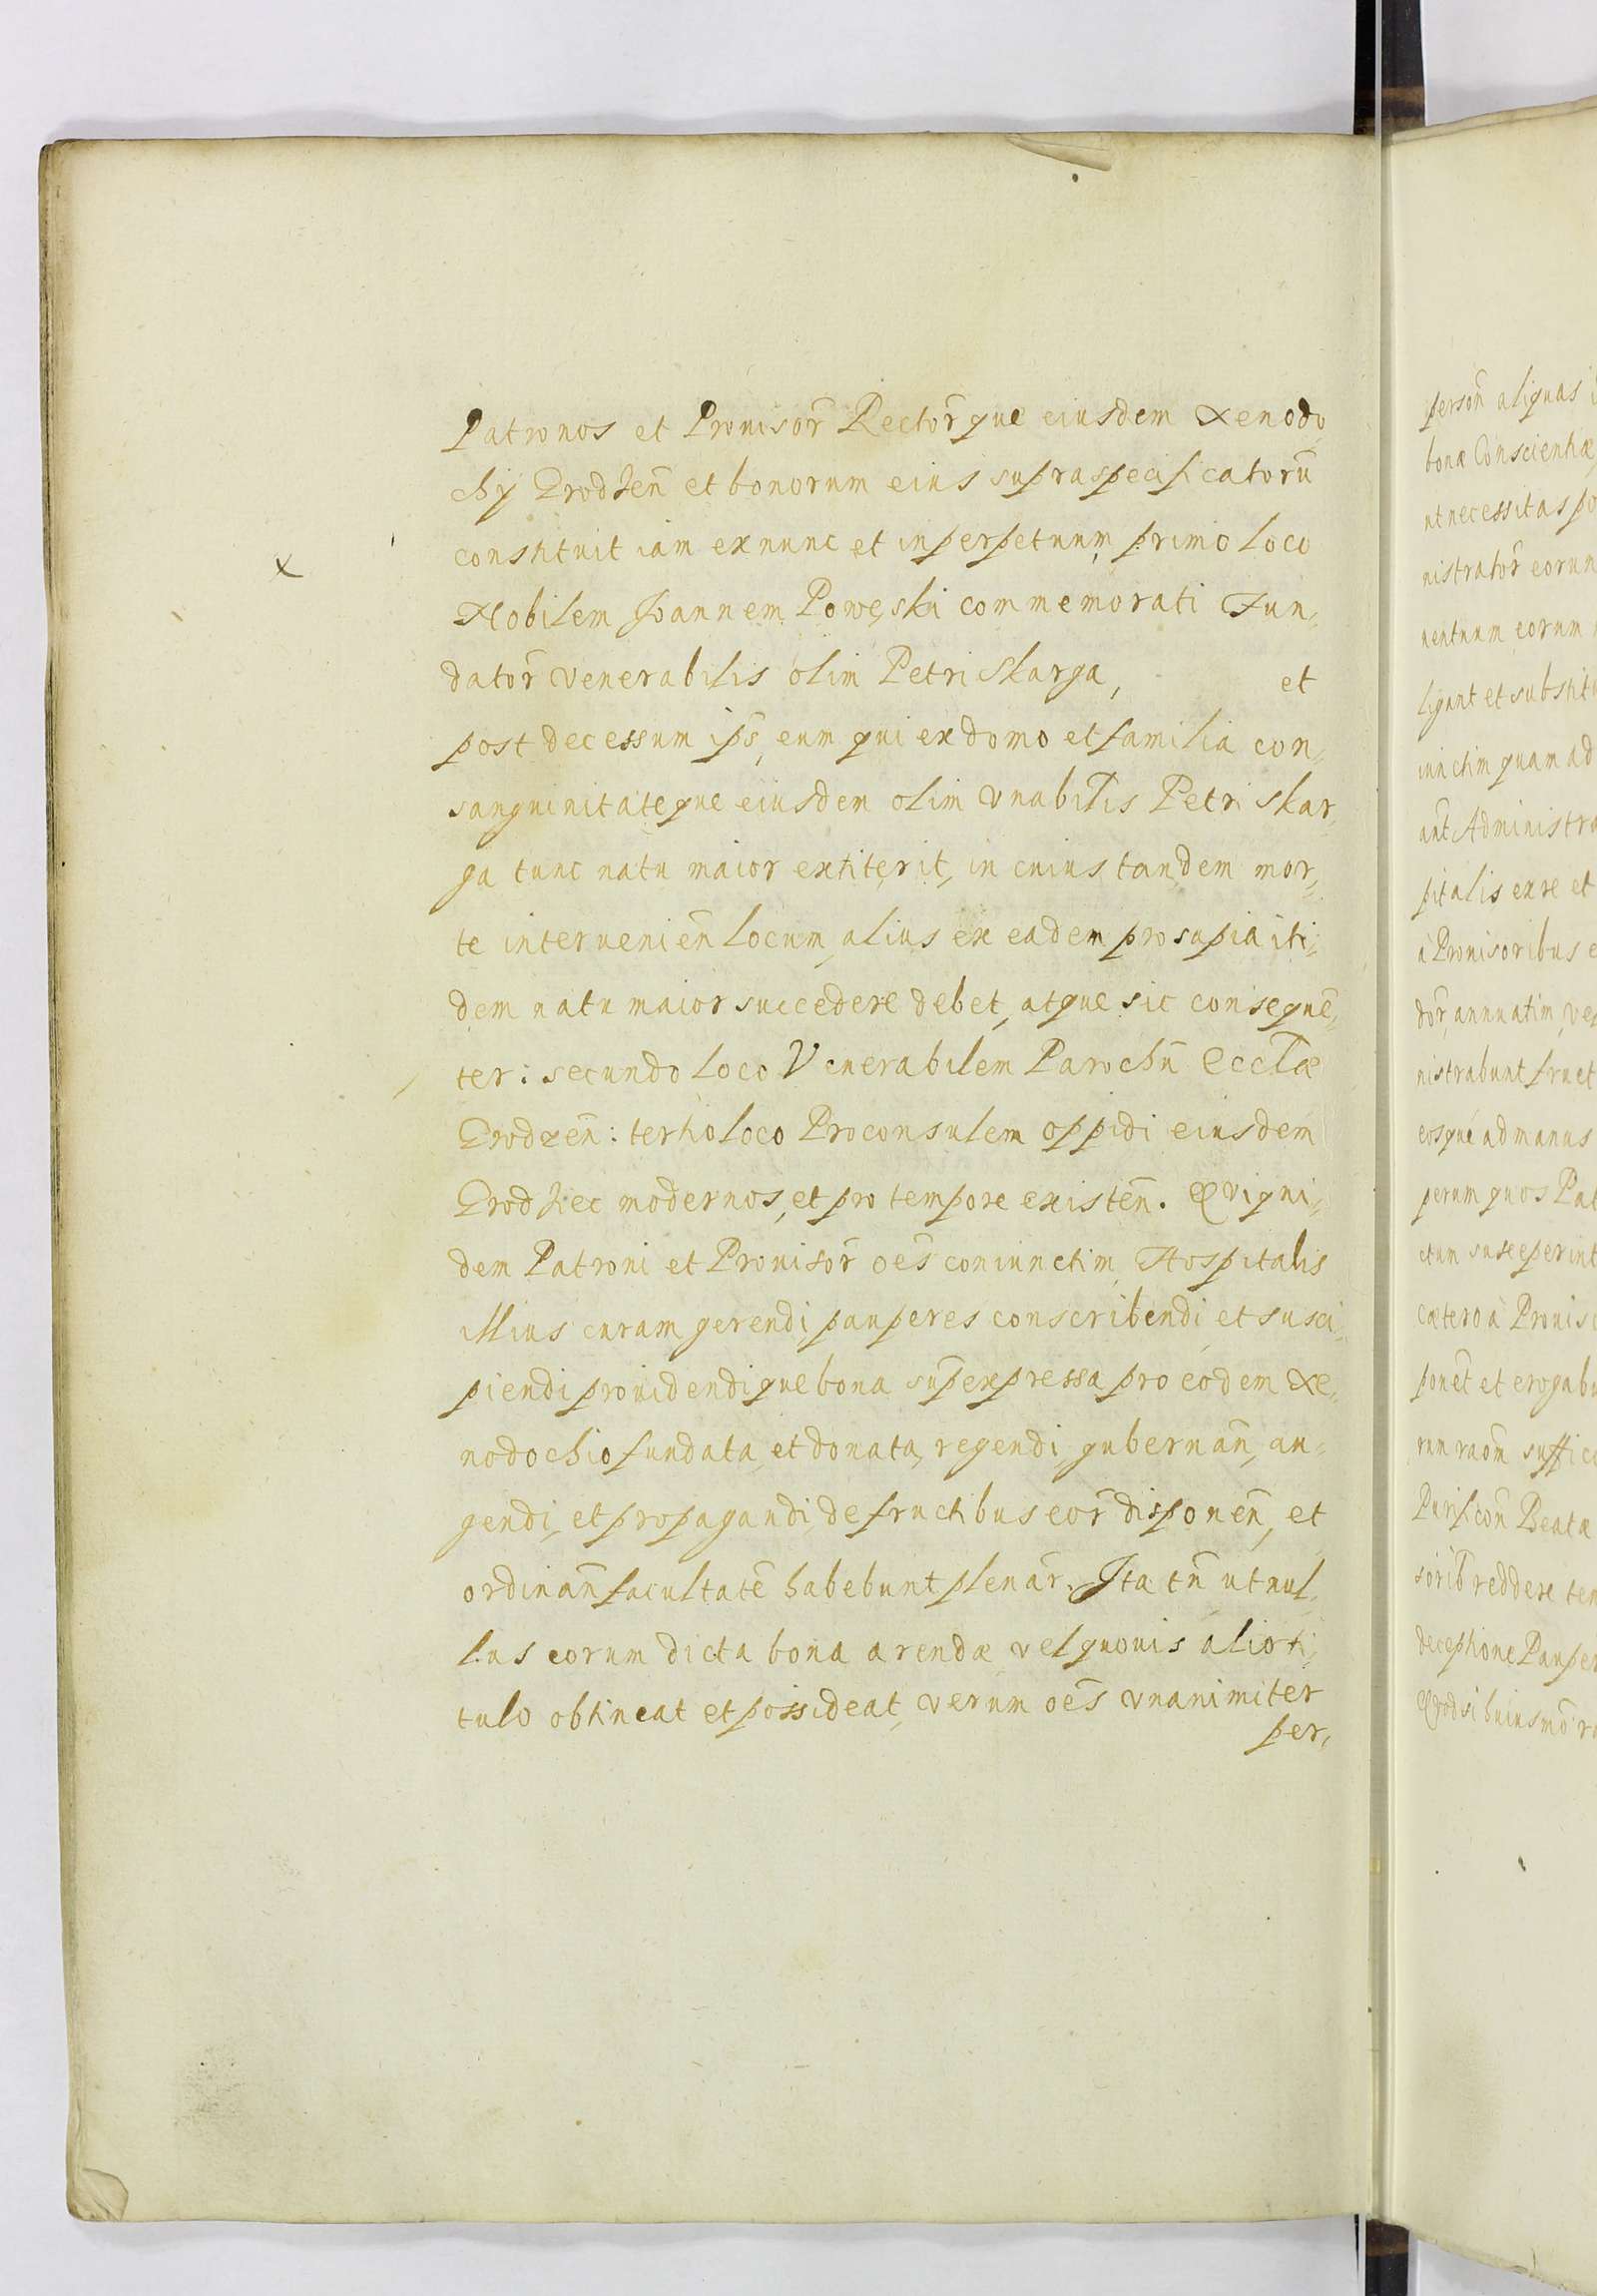 Patronos et Prouisor̄ Rector̄que eiusdem Xenodo,
chij Grodzen̄ et bonorum eius supraspecificatorū
constituit iam ex nunc et in perpetuum, primo loco
x
Nobilem Joannem Powęski commemorati Fun,
dator̄ venerabilis olim Petri Skarga, et
post decessum ips̄, eum qui ex domo et familia con,
sanguinitateque eiusdem olim vnabil̄is Petri Skar,
ga tunc natu maior extiterit, in cuius tandem mor,
te interuenien̄ locum, alius ex eadem prosapia iti,
dem natu maior succedere debet, atque sic consequē,
ter: secundo loco Venerabilem Parochū Eccl̄æ
Grodzen̄: tertio loco Proconsulem oppidi eiusdem
Grodziec modernos, et pro tempore existen̄. Qviqui,
dem Patroni et Prouisor̄ oēs coniunctim, Hospitalis
illius curam gerendi, pauperes conscribendi, et susci,
piendi prouidendique bona sup̄expressa pro eodem Xe,
nodochio fundata, et donata, regendi, gubernan̄, au,
gendi, et propagandi, de fructibus eor̄ disponen̄, et
ordinan̄ facultatē habebunt plenar̄. Ita tn̄ ut nul,
lus eorum dicta bona arendæ vel quouis alio ti,
tulo obtineat et possideat, verum oēs vnanimiter
per,
person̄ aliquas
bonæ Conscientiæ
ut necessitas po
nistrator̄ eorum
uentuum eorum
ligant et substitu
iunctim quam ad
ant̄ Administra
pitalis ex re et
à Prouisoribus e
dor̄ annuatim, ve
nistrabunt fruct
eosque ad manus
perum quos Pat
ctum susceperint
cætero à Prouis
ponēt et erogabu
rum raōm suffici
Purif̄icon̄ Beatæ
sorib̄ reddere ten
deceptione Pauper
Qvodsi huiusmō r